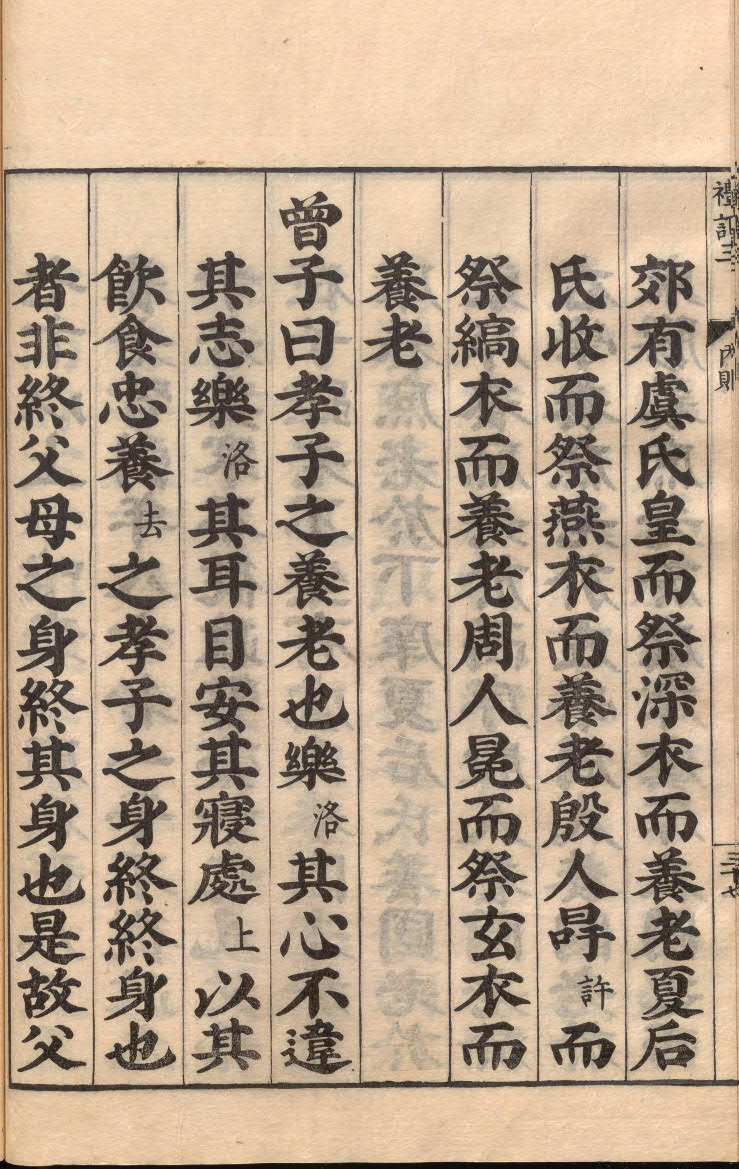 禮記三 內則
郊有虞氏皇而祭深衣而養老夏后
氏收而祭燕衣而養老殷人冔許而
祭縞衣而養老周人冕而祭玄衣而
養老
曾子曰孝子之養老也樂洛其心不違
其志樂洛其耳目安其寢處上以其
飮食忠養去之孝子之身終終身也
者非終父母之身終其身也是故父